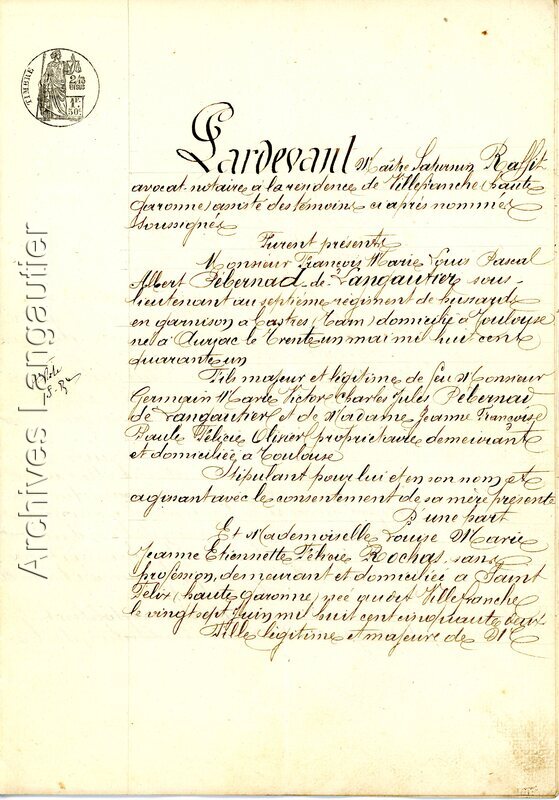 TIMBRE
2/10
EN SUS
1F
50c
Pardevant Maître Saturnin Raffit
avocat-notaire à la residence de Villefranche (haute
Garonne) assisté des témoins ci après nommés
soussignés
Furent présents
Monsieur François Marie Louis Pascal
Albert Pébernad de Langautier sous-
lieutenant au septième régiment de hussards
en garnison à Castres (Tarn) domicilié à Toulouse
né à Auriac le trente un mai mil huit cent
quarante un
Fils majeur et légitime de feu Monsieur
Germain Marie Victor Charles Jules Pébernad
de Langautier et de Madame Jeanne Françoise
Paule Félicie Olivier propriétaire demeurant
et domiciliée à Toulouse
Stipulant pour lui et en son nom et
agissant avec le consentement de sa mère présente
D'une part
Et Mademoiselle Louise Marie
Jeanne Etiennette Félicie Rochas, sans
profession, demeurant et domiciliée à Saint
Félix (haute garonne) née audit Villefranche
le vingt sept Juin mil huit cent cinquante deux
Fille légitime et majeure de Mr
Archives Langautier